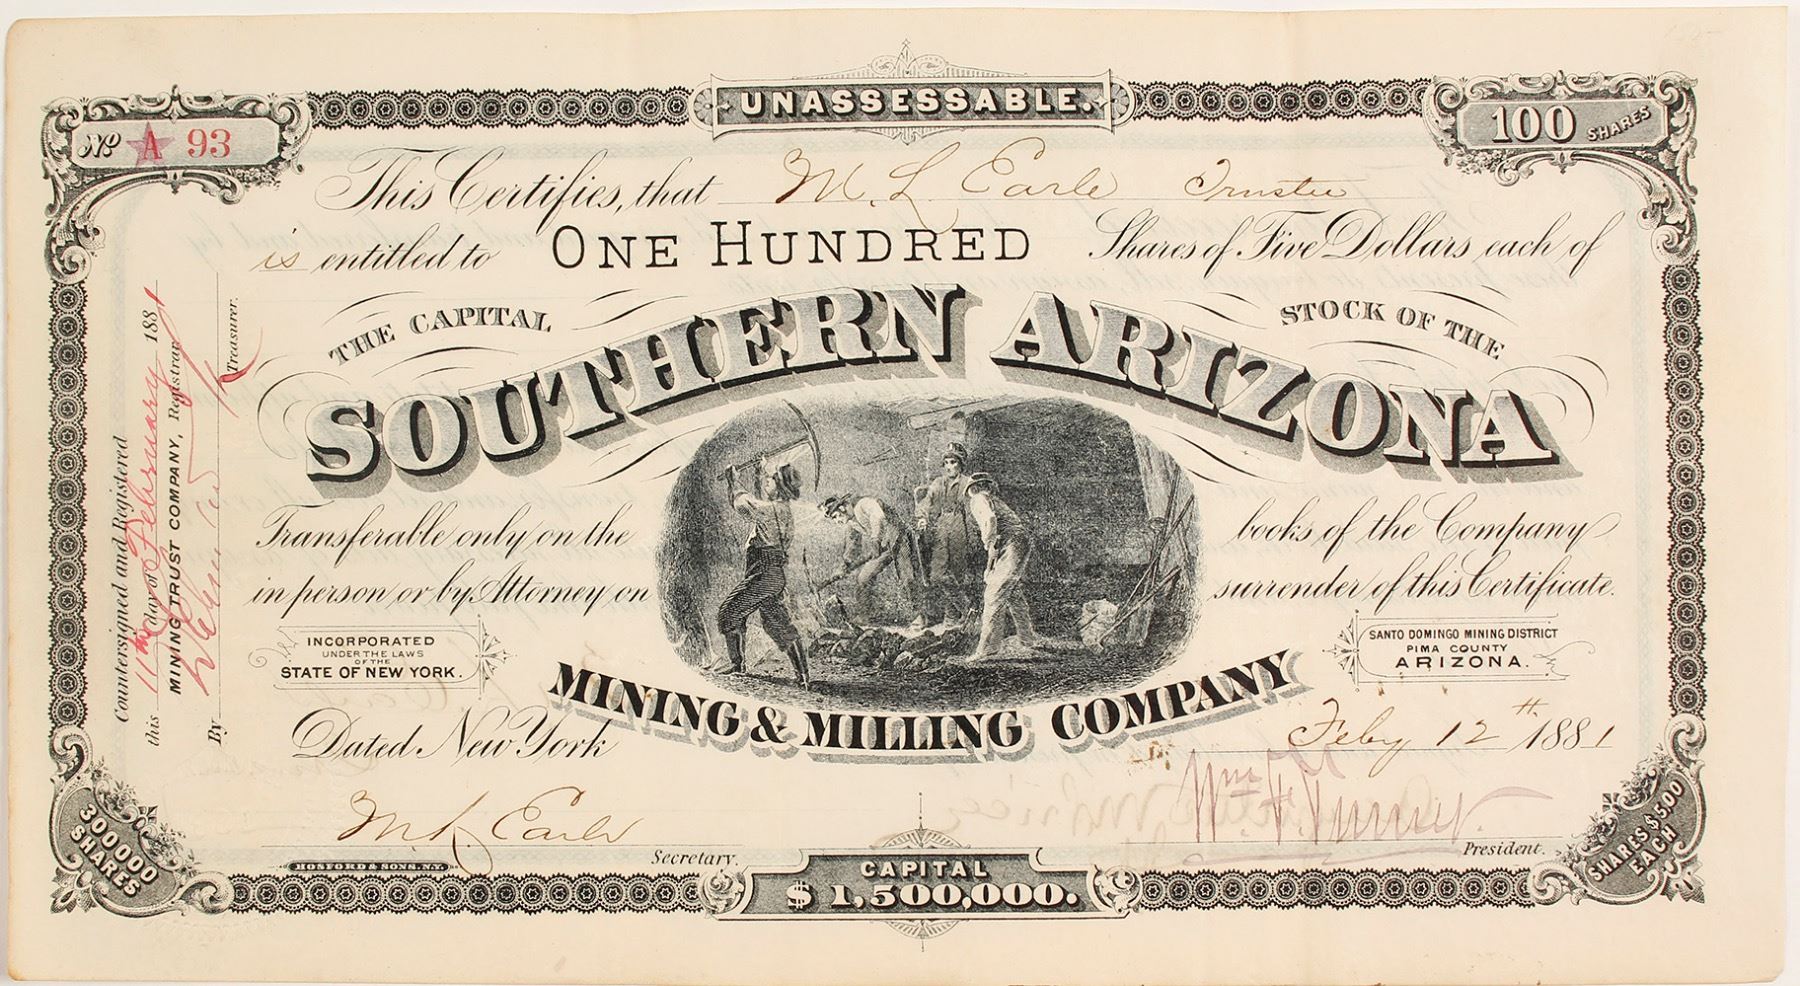 UNASSESSABLE.
No A 93
100 SHARES
This Certifies, that M. L. Earle Trustee
is entitled to ONE HUNDRED Shares of Five Dollars each of
THE CAPITAL STOCK OF THE
SOUTHERN ARIZONA
Transferable only on the books of the Company
in person or by Attorney on surrender of this Certificate.
INCORPORATED
UNDER THE LAWS
OF THE
STATE OF NEW YORK.
SANTO DOMINGO MINING DISTRICT
PIMA COUNTY
ARIZONA.
MINING & MILLING COMPANY
Dated New York Feby 12th 1881
M. L. Earle
Secretary.
President.
HOSFORD & SONS, N.Y.
CAPITAL
$1,500,000.
300000
SHARES
SHARES $5.00
EACH
Countersigned and Registered
this 11th day of February 1881
MINING TRUST COMPANY, Registrar
By Treasurer.